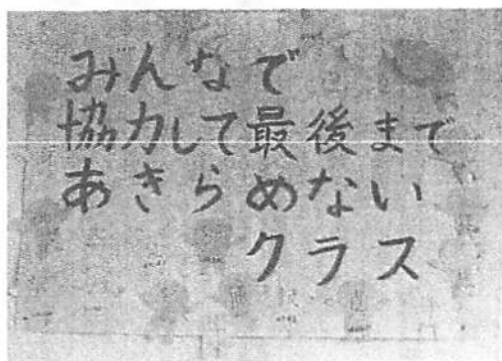 みんなで
協力して最後まで
あきらめない
クラス